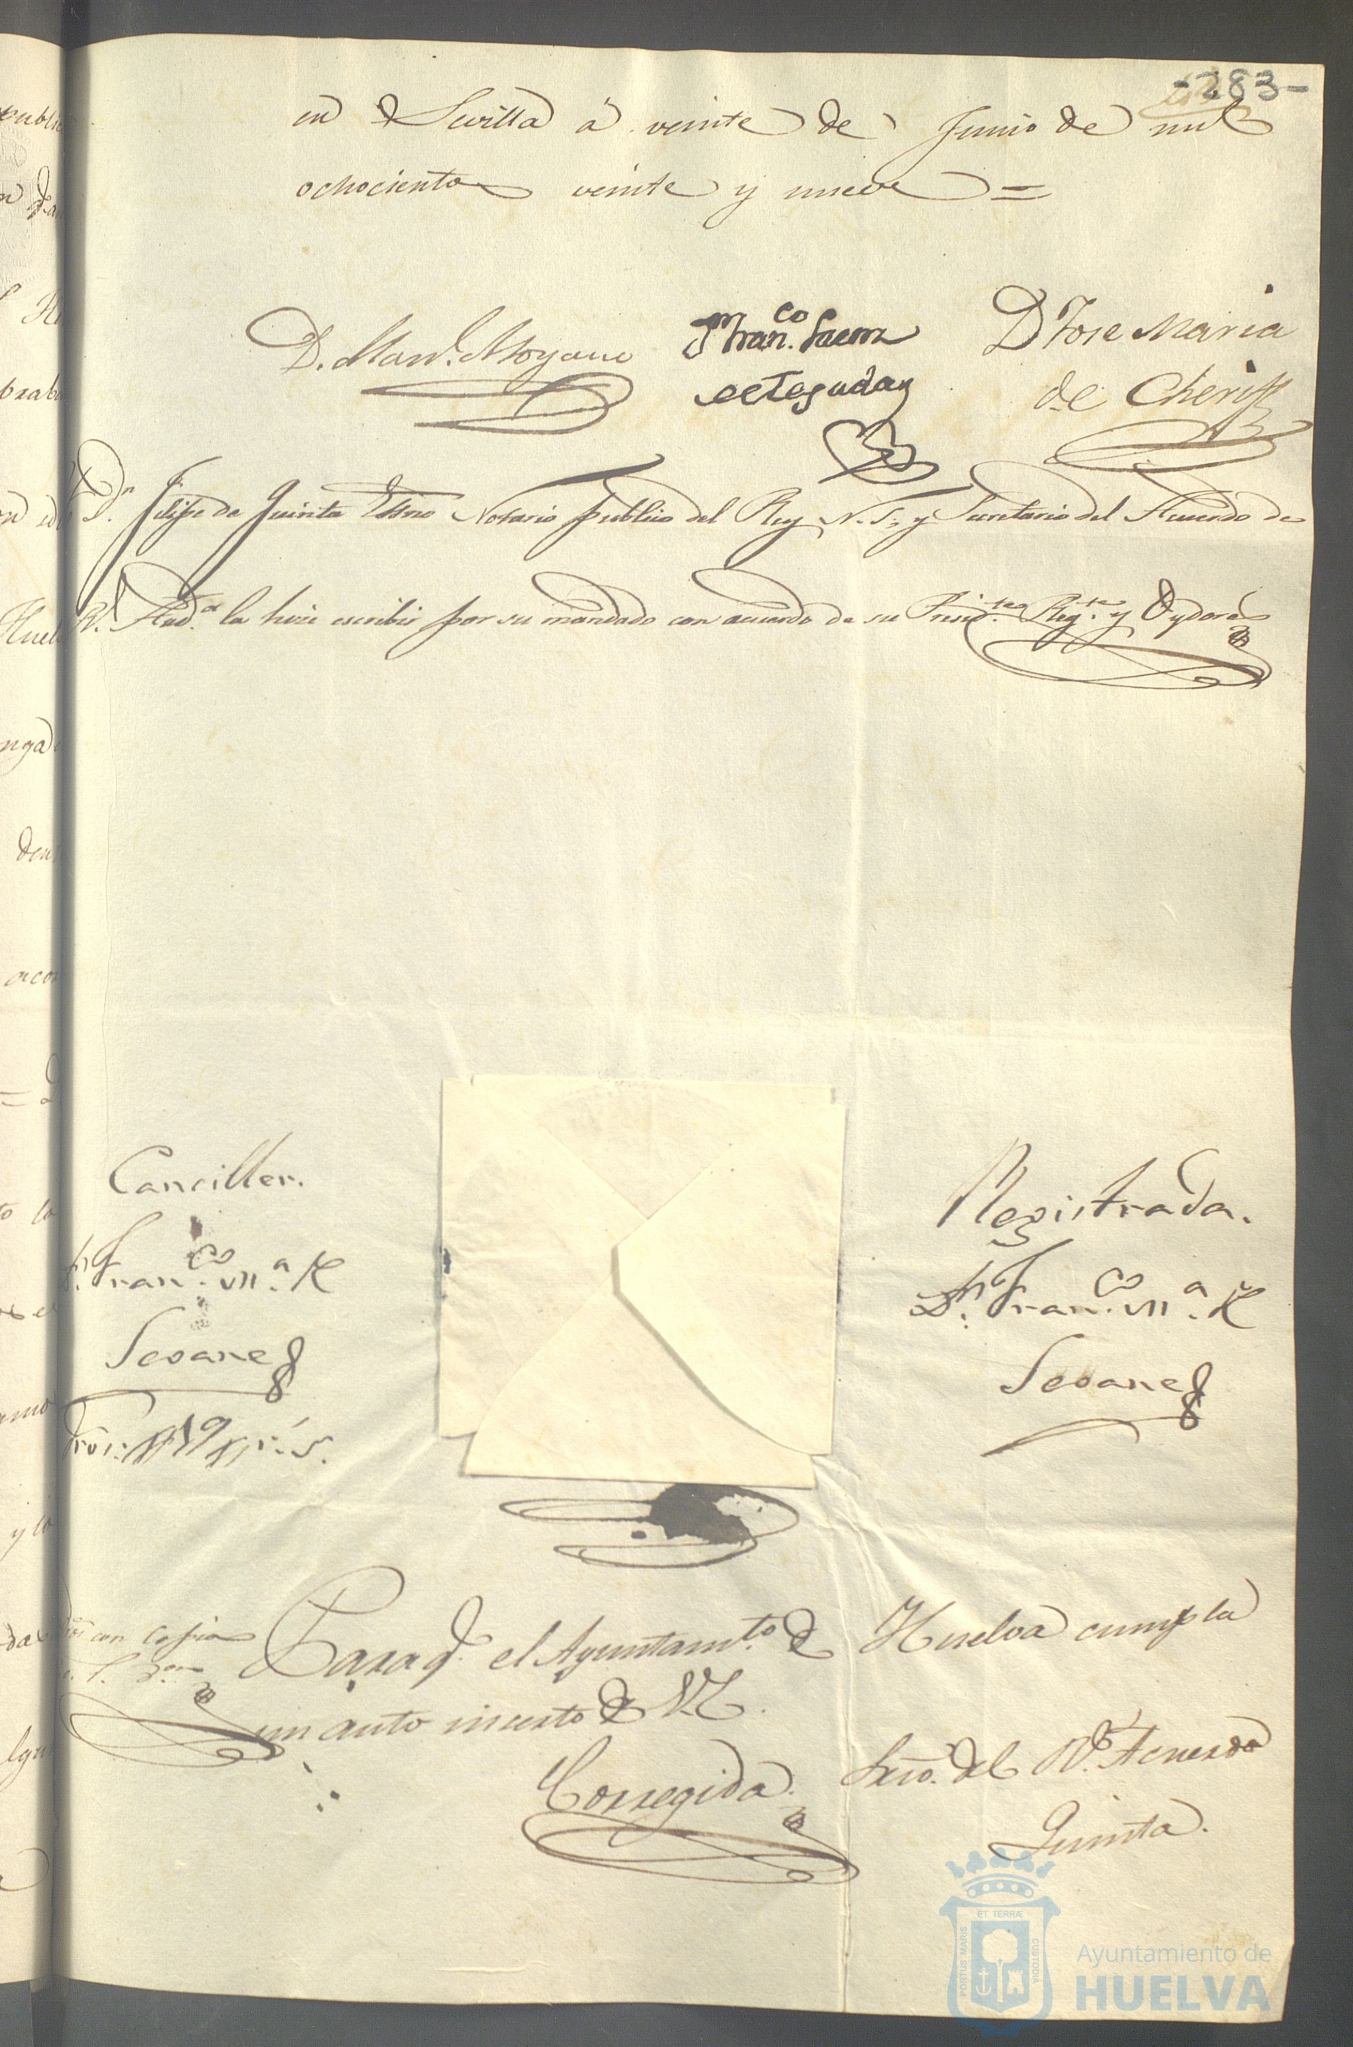 -283-
en Sevilla á veinte de Junio de mil
ochocientos veinte y nueve =
D. Man.l Moyano
Fran.co Saenz
de Tejada
D Jose Maria
de Cheriff
D.n Felipe de Quinta Essno Notario publico del Rey N. S. y Secretario del Acuerdo de
R.l Aud.a la hize escribir por su mandado con acuerdo de su Presid.te Reg.te y Oydores
Canciller.
D.n Fran.co M.a R
Seoane
Registrada.
D.n Fran.co M.a R
Seoane
dros con copia
Para q.e el Ayuntam.to de Huelva cumpla
un auto inserto de V.E.
Corregida.
Srio. del R.l Acuerdo
Quinta.
PORTUS MARIS
ET TERRÆ
CUSTODIA
Ayuntamiento de
HUELVA